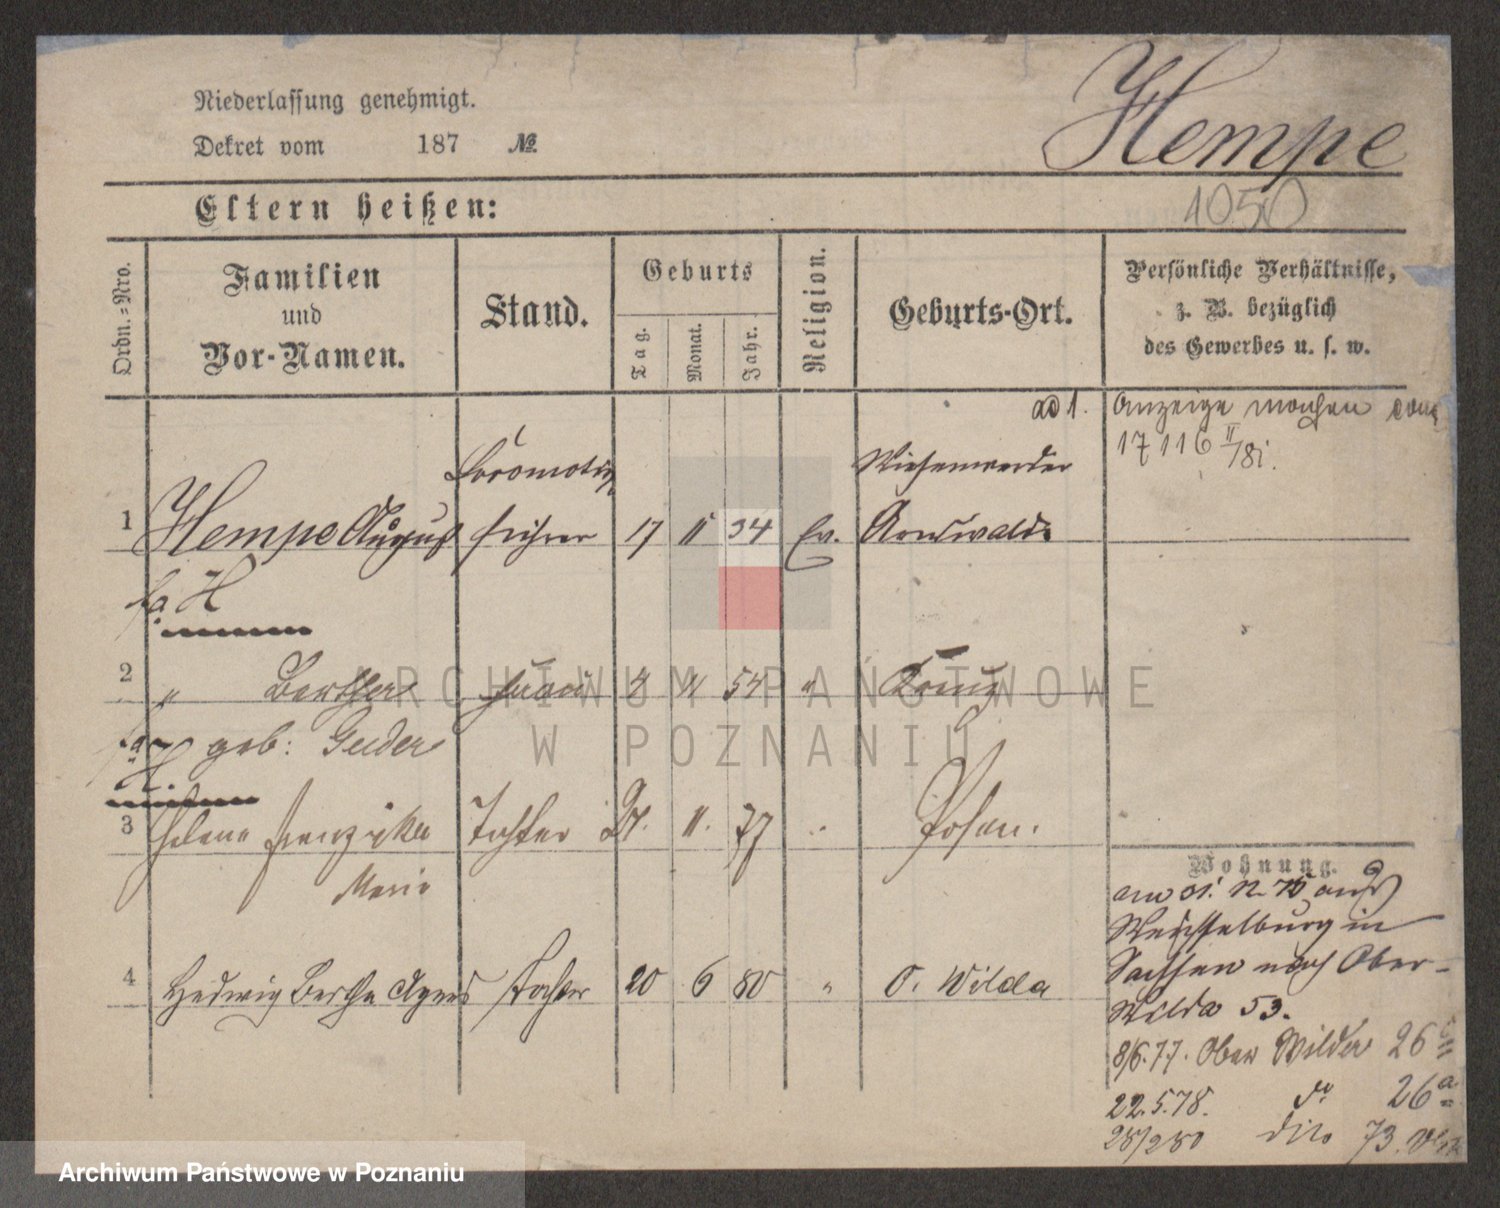 Niederlassung genehmigt.
Hempe
Dekret vom 187 №
Eltern heißen:
1050
Ordn.-Nro.
Familien
und
Vor-Namen.
Stand.
Geburts
Tag.
Monat.
Jahr.
Religion.
Geburts-Ort.
Persönliche Verhältnisse,
z. B. bezüglich
des Gewerbes u. s. w.
ad 1. Anzeige machen
17 116 II/81.
Locomotiv
Wiesenwerder
1 Hempe August führer 17 11 34 Ev. Arnswalde
H
2 " Bertha Frau 4 11 54 "
geb: Guder
H.
3 Helene Franziska Tochter 11. 77 Posen.
Marie
4 Hedwig Bertha Agnes Tochter 20 6 80 " O. Wilda
Wohnung.
am 31. 12. 75 aus
Wechselburg in
Sachsen nach Ober-
Wilda 53.
8/6.77. Ober Wilda 26
22.5.78. do 26a
28/2 80 dito 73.
ARCHIWUM PAŃSTWOWE
W POZNANIU
Archiwum Państwowe w Poznaniu